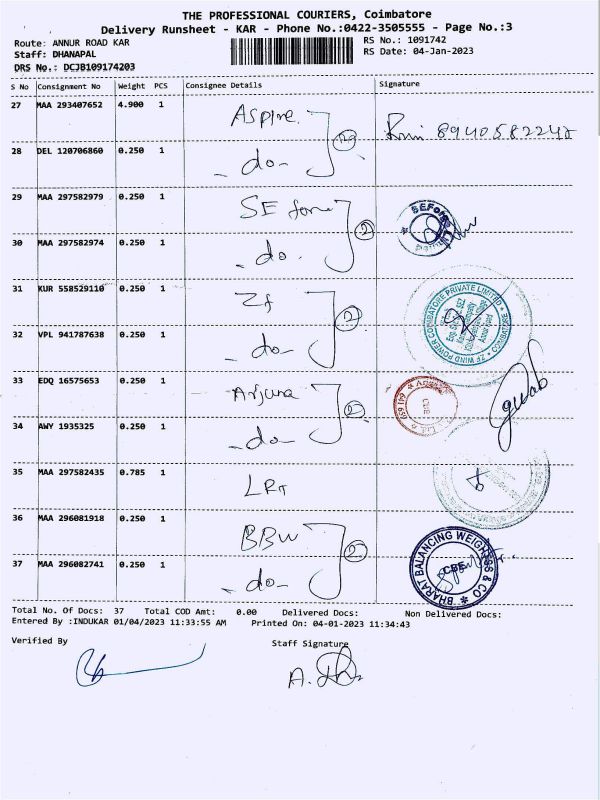 THE PROFESSIONAL COURIERS, Coimbatore
Delivery Runsheet - KAR - Phone No.:0422-3505555 - Page No.:3
Route: ANNUR ROAD KAR
RS No.: 1091742
Staff: DHANAPAL
RS Date: 04-Jan-2023
DRS No.: DCJB109174203
S No Consignment No Weight PCS Consignee Details Signature
27 MAA 293407652 4.900 1 Aspire 8940582242
28 DEL 120706860 0.250 1 - do -
29 MAA 297582979 0.250 1 SE forge 2
30 MAA 297582974 0.250 1 - do -
31 KUR 558529110 0.250 1 Zf 2
32 VPL 941787638 0.250 1 - do -
33 EDQ 16575653 0.250 1 Arjuna 2
34 AWY 1935325 0.250 1 - do -
35 MAA 297582435 0.785 1 LRT
36 MAA 296081918 0.250 1 BBW 2
37 MAA 296082741 0.250 1 - do -
ZF WIND POWER COIMBATORE PRIVATE LIMITED * COIMBATORE
BHARAT BALANCING WEIGHTSS & CO
CBE
Total No. Of Docs: 37 Total COD Amt: 0.00 Delivered Docs: Non Delivered Docs:
Entered By :INDUKAR 01/04/2023 11:33:55 AM Printed On: 04-01-2023 11:34:43
Verified By Staff Signature